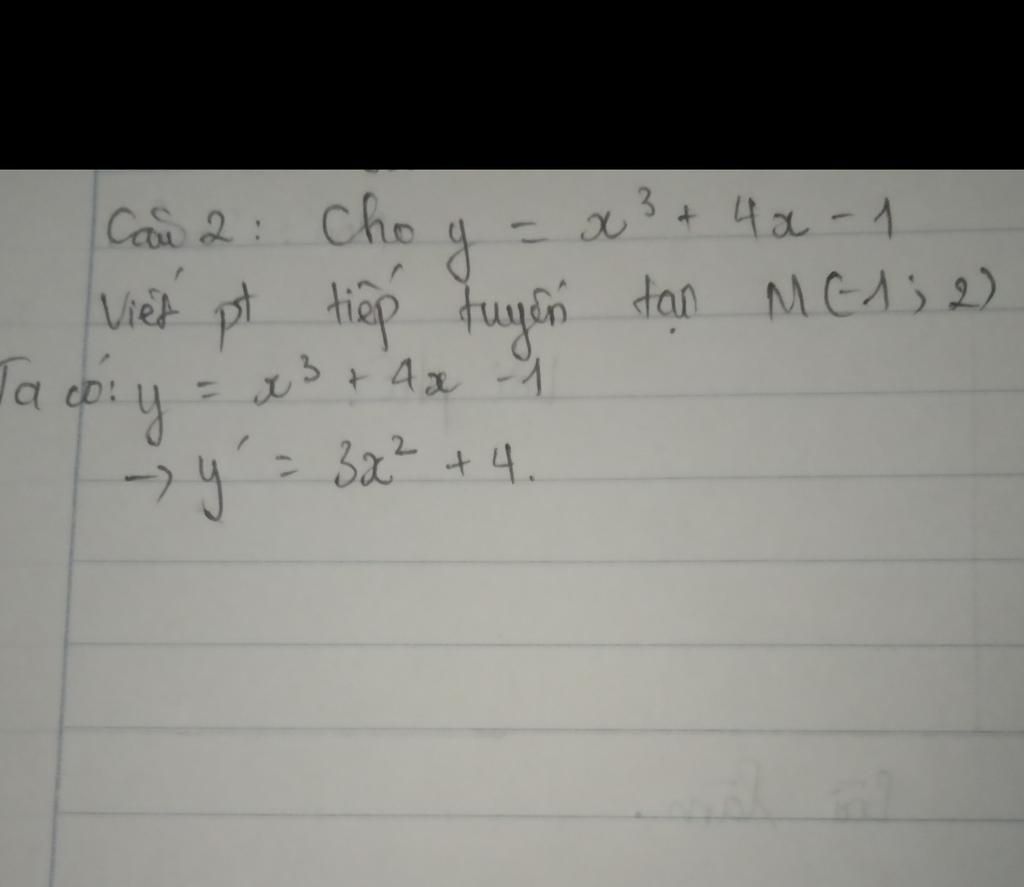 Câu 2: Cho y = x³ + 4x - 1
Viết pt tiếp tuyến tại M(-1; 2)
Ta có: y = x³ + 4x - 1
→ y' = 3x² + 4.